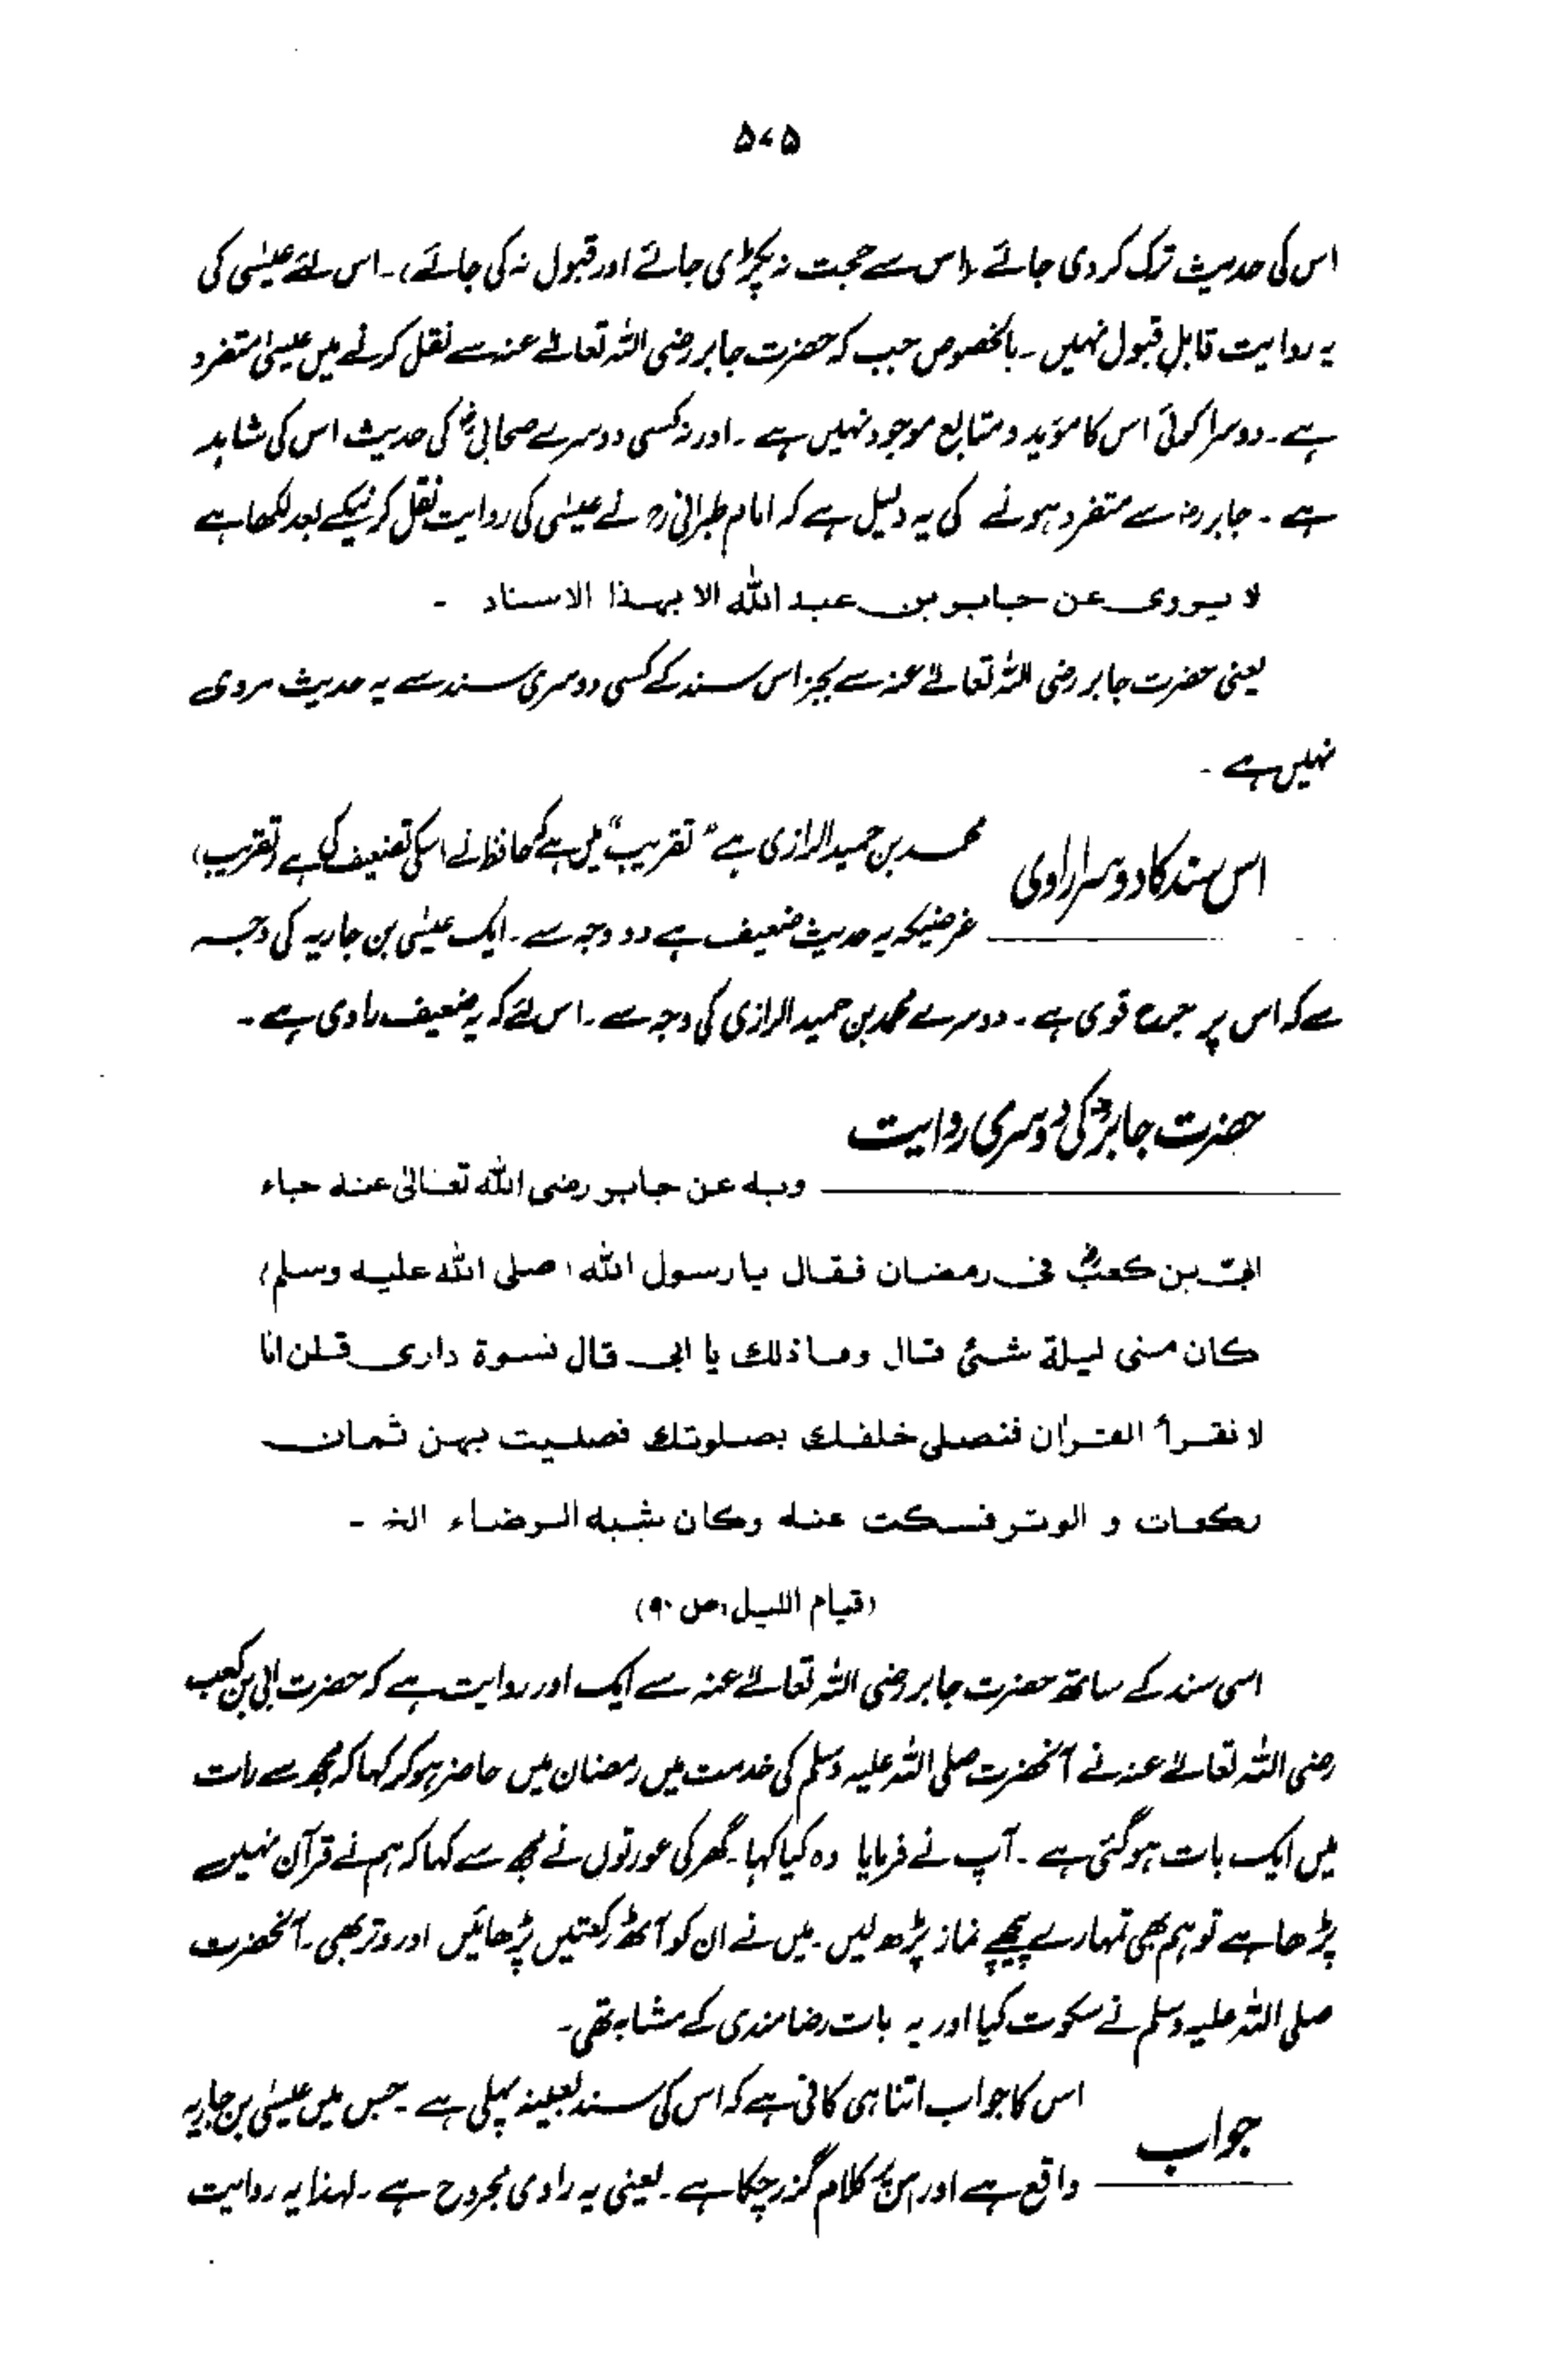 ۵۷۵
اس کی حدیث ترک کردی جائے (اس سے حجت نہ پکڑی جائے اور قبول نہ کی جائے)۔ اس لئے عیسٰی کی
یہ روایت قابلِ قبول نہیں۔ بالخصوص جب کہ حضرت جابر رضی اللہ تعالےٰ عنہ سے نقل کرنے میں عیسیٰ متفرد
ہے۔ دوسرا کوئی اس کا مؤید و متابع موجود نہیں ہے۔ اور نہ کسی دوسرے صحابیؓ کی حدیث اس کی شاہد
ہے۔ جابررضؓ سے متفرد ہونے کی یہ دلیل ہے کہ امام طبرانی رح نے عیسٰی کی روایت نقل کرنیکے بعد لکھا ہے
لا یروی عن جابر بن عبد اللہ الا بہذا الاسناد ۔
یعنی حضرت جابر رضی اللہ تعالےٰ عنہ سے بجز اس سند کے کسی دوسری سند سے یہ حدیث مروی
نہیں ہے ۔
اس سند کا دوسرا راوی محمد بن حمید الرازی ہے "تقریب" میں ہے کہ حافظ نے اسکی تضعیف کی ہے (تقریب)
غرضیکہ یہ حدیث ضعیف ہے دو وجہ سے ۔ ایک عیسٰی بن جاریہ کی وجہ
سے کہ اس پر جرح قوی ہے ۔ دوسرے محمد بن حمید الرازی کی وجہ سے ۔ اس لئے کہ یہ ضعیف راوی ہے ۔
حضرت جابرؓ کی دوسری روایت
وبہ عن جابر رضی اللہ تعالیٰ عنہ جاء
ابی بن کعبؓ فی رمضان فقال یا رسول اللہ (صلی اللہ علیہ وسلم)
کان منی لیلة شئی قال وما ذلك یا ابی قال نسوة داری قلن انا
لا نقرأ القرآن فنصلی خلفك بصلوتك فصلیت بہن ثمان
رکعات و الوتر فسکت عنہ وکان شبہ الرضاء الخ ۔
(قیام اللیل، ص ۹۰)
اسی سند کے ساتھ حضرت جابر رضی اللہ تعالےٰ عنہ سے ایک اور روایت ہے کہ حضرت ابی بن کعب
رضی اللہ تعالےٰ عنہ نے آنحضرت صلی اللہ علیہ وسلم کی خدمت میں رمضان میں حاضر ہوکر کہا کہ مجھ سے رات
میں ایک بات ہو گئی ہے ۔ آپ نے فرمایا وہ کیا کہا ۔ گھر کی عورتوں نے مجھ سے کہا کہ ہم نے قرآن نہیں
پڑھا ہے تو ہم بھی تمہارے پیچھے نماز پڑھ لیں ۔ میں نے ان کو آٹھ رکعتیں پڑھائیں اور وتر بھی ۔ آنحضرت
صلی اللہ علیہ وسلم نے سکوت کیا اور یہ بات رضامندی کے مشابہ تھی ۔
جواب اس کا جواب اتنا ہی کافی ہے کہ اس کی سند بعینہ پہلی ہے ۔ جس میں عیسیٰ بن جاریہ
واقع ہے اور اس پر کلام گزر چکا ہے ۔ یعنی یہ راوی مجروح ہے ۔ لہذا یہ روایت